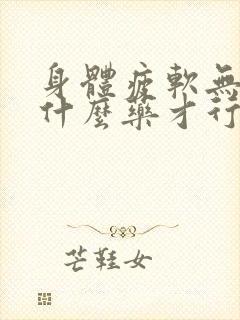 身體疲軟無
什麼藥才行
芒鞋女